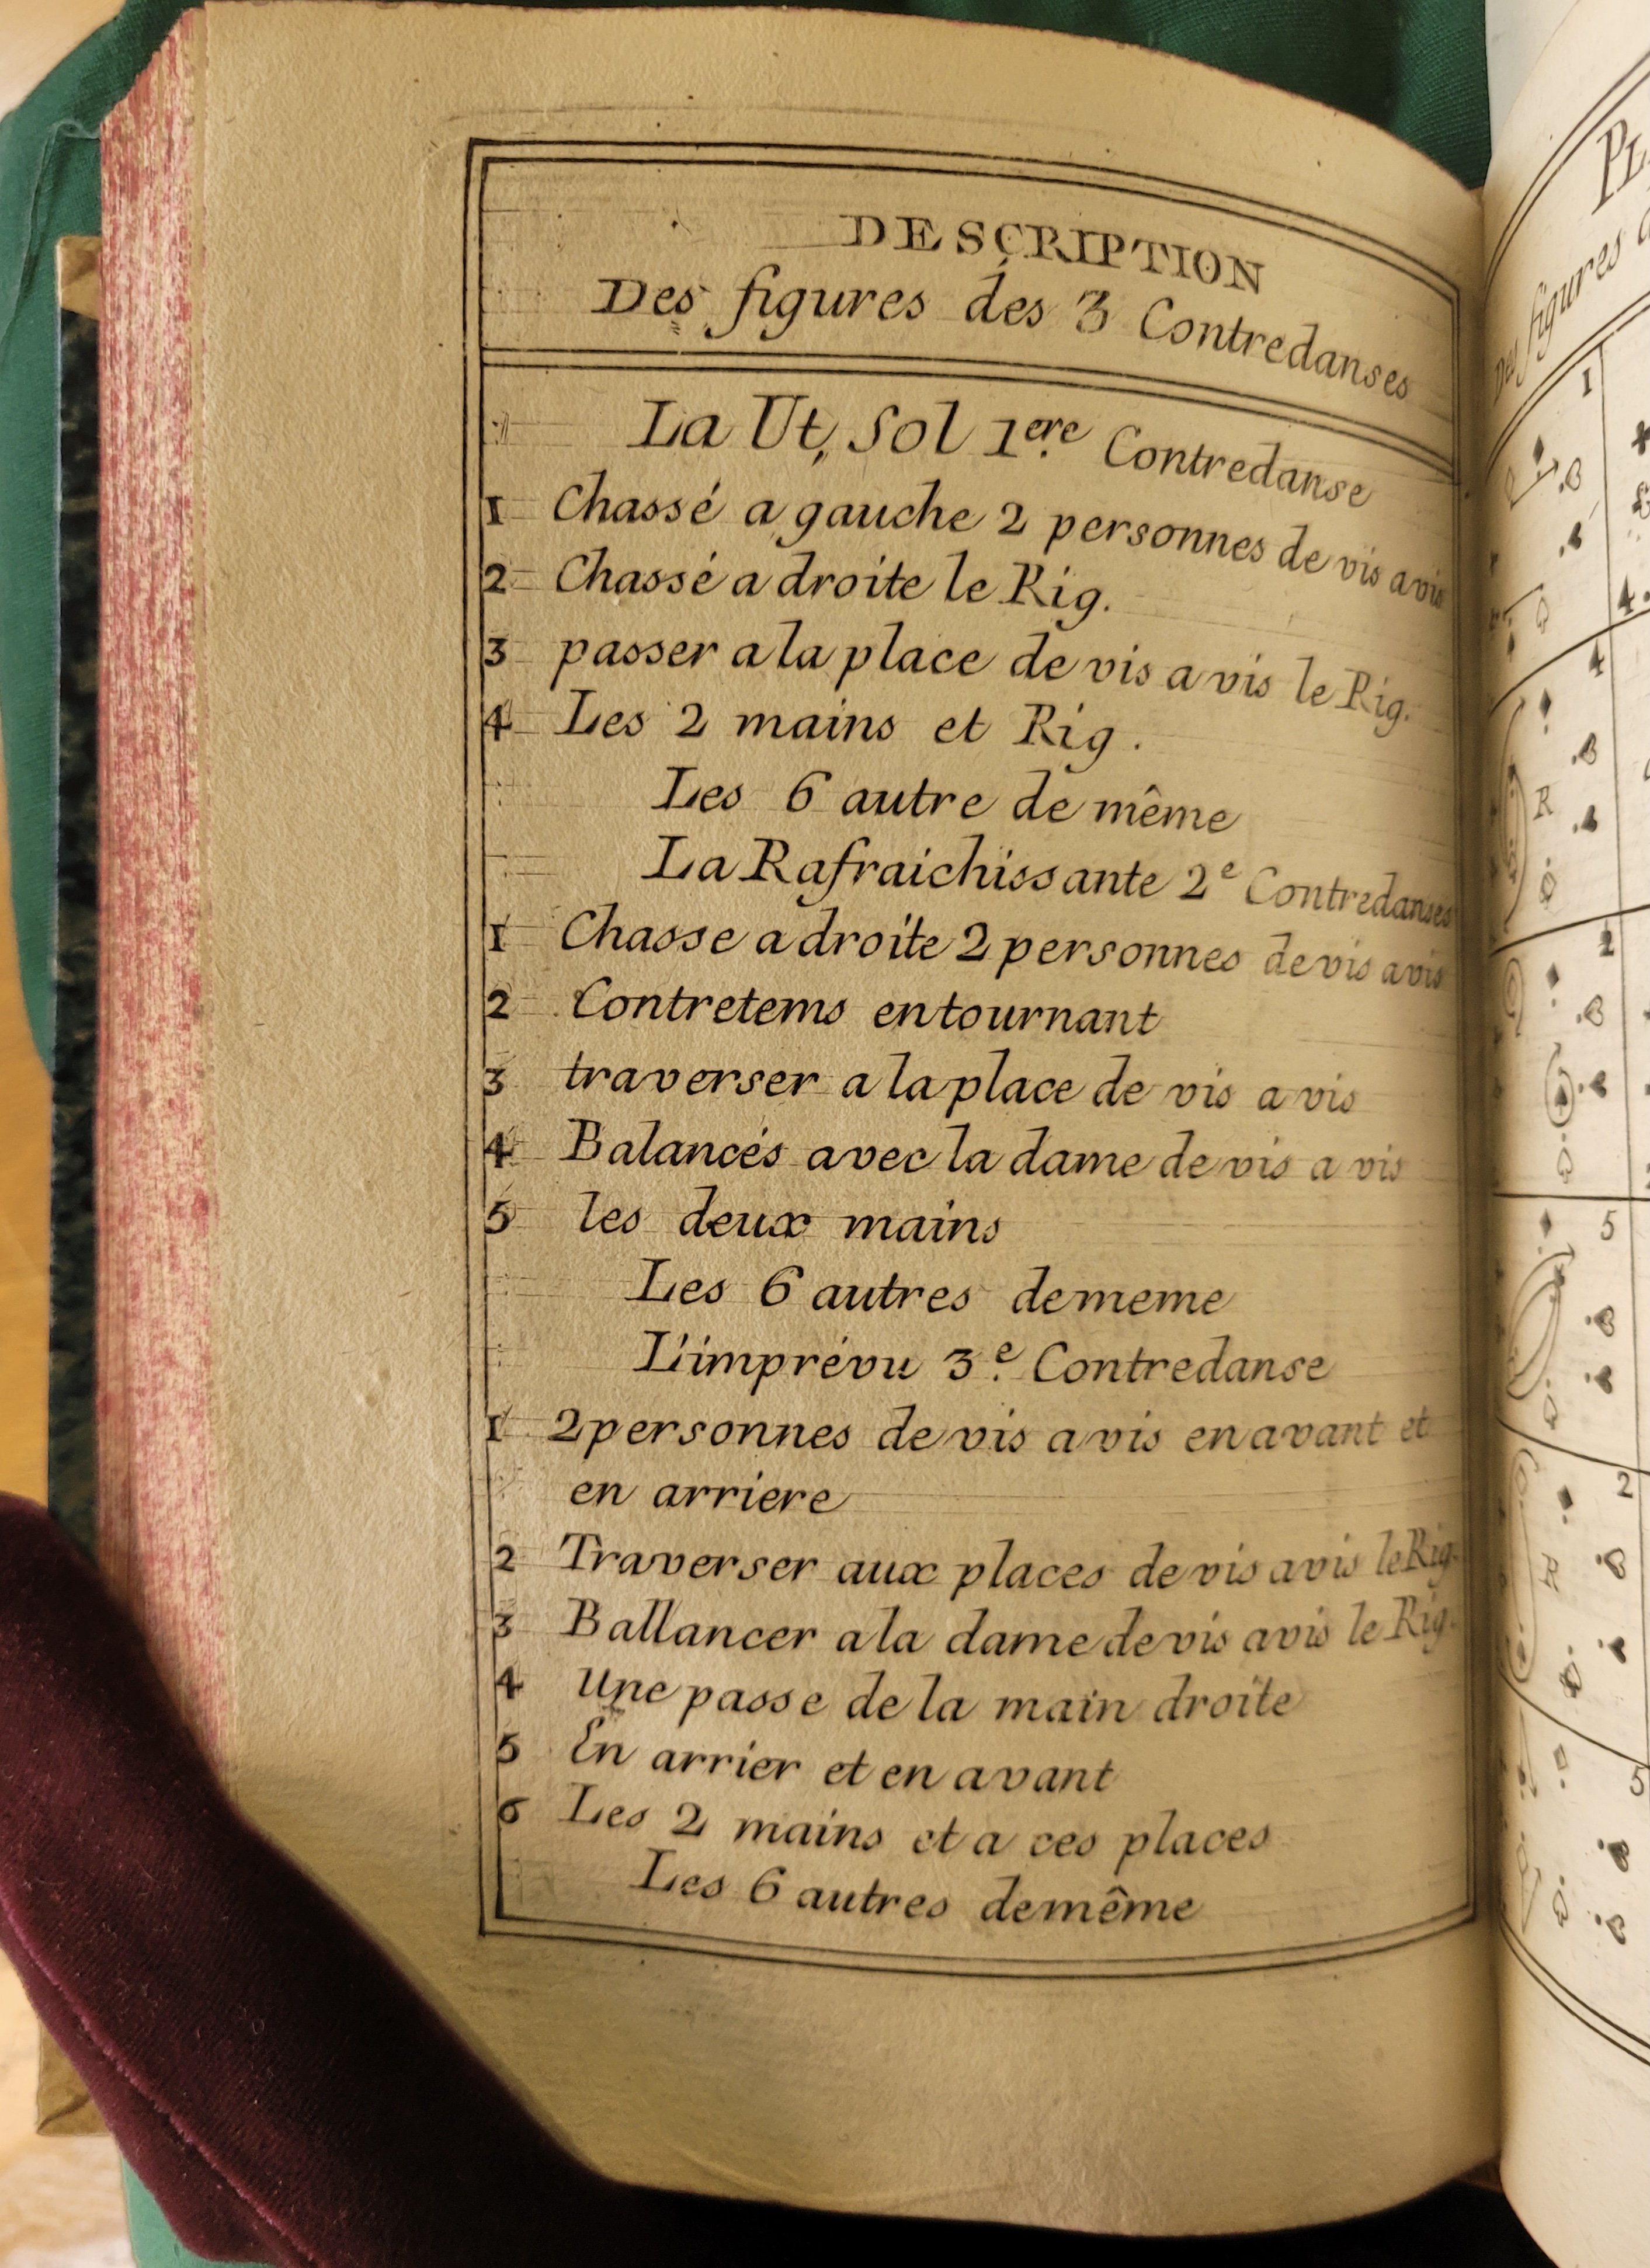 DESCRIPTION
Des figures des 3 Contredanses
La Ut, Sol 1ere Contredanse
1 Chassé a gauche 2 personnes de vis a vis
2 Chassé a droite le Rig.
3 passer a la place de vis a vis le Rig.
4 Les 2 mains et Rig.
Les 6 autre de même
La Rafraichissante 2e Contredanses
1 Chasse a droite 2 personnes de vis a vis
2 Contretems en tournant
3 traverser a la place de vis a vis
4 Balancés avec la dame de vis a vis
5 les deux mains
Les 6 autres de meme
L'imprévu 3e. Contredanse
1 2 personnes de vis a vis en avant et
en arriere
2 Traverser aux places de vis a vis le Rig.
3 Ballancer a la dame de vis a vis le Rig.
4 Une passe de la main droite
5 En arrier et en avant
6 Les 2 mains et a ces places
Les 6 autres de même
PL
figures
1
4
R
1
5
2
R
5